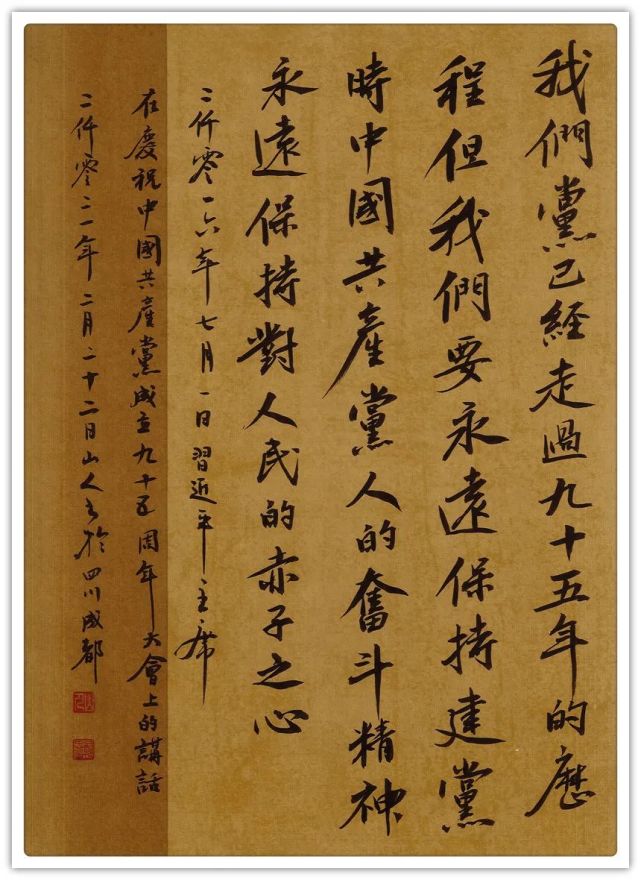 我們黨已經走過九十五年的歷
程但我們要永遠保持建黨
時中國共產黨人的奮斗精神
永遠保持對人民的赤子之心
二仟零一六年七月一日習近平主席
在慶祝中國共產黨成立九十五周年大會上的講話
二仟零二一年二月二十二日山人書於四川成都